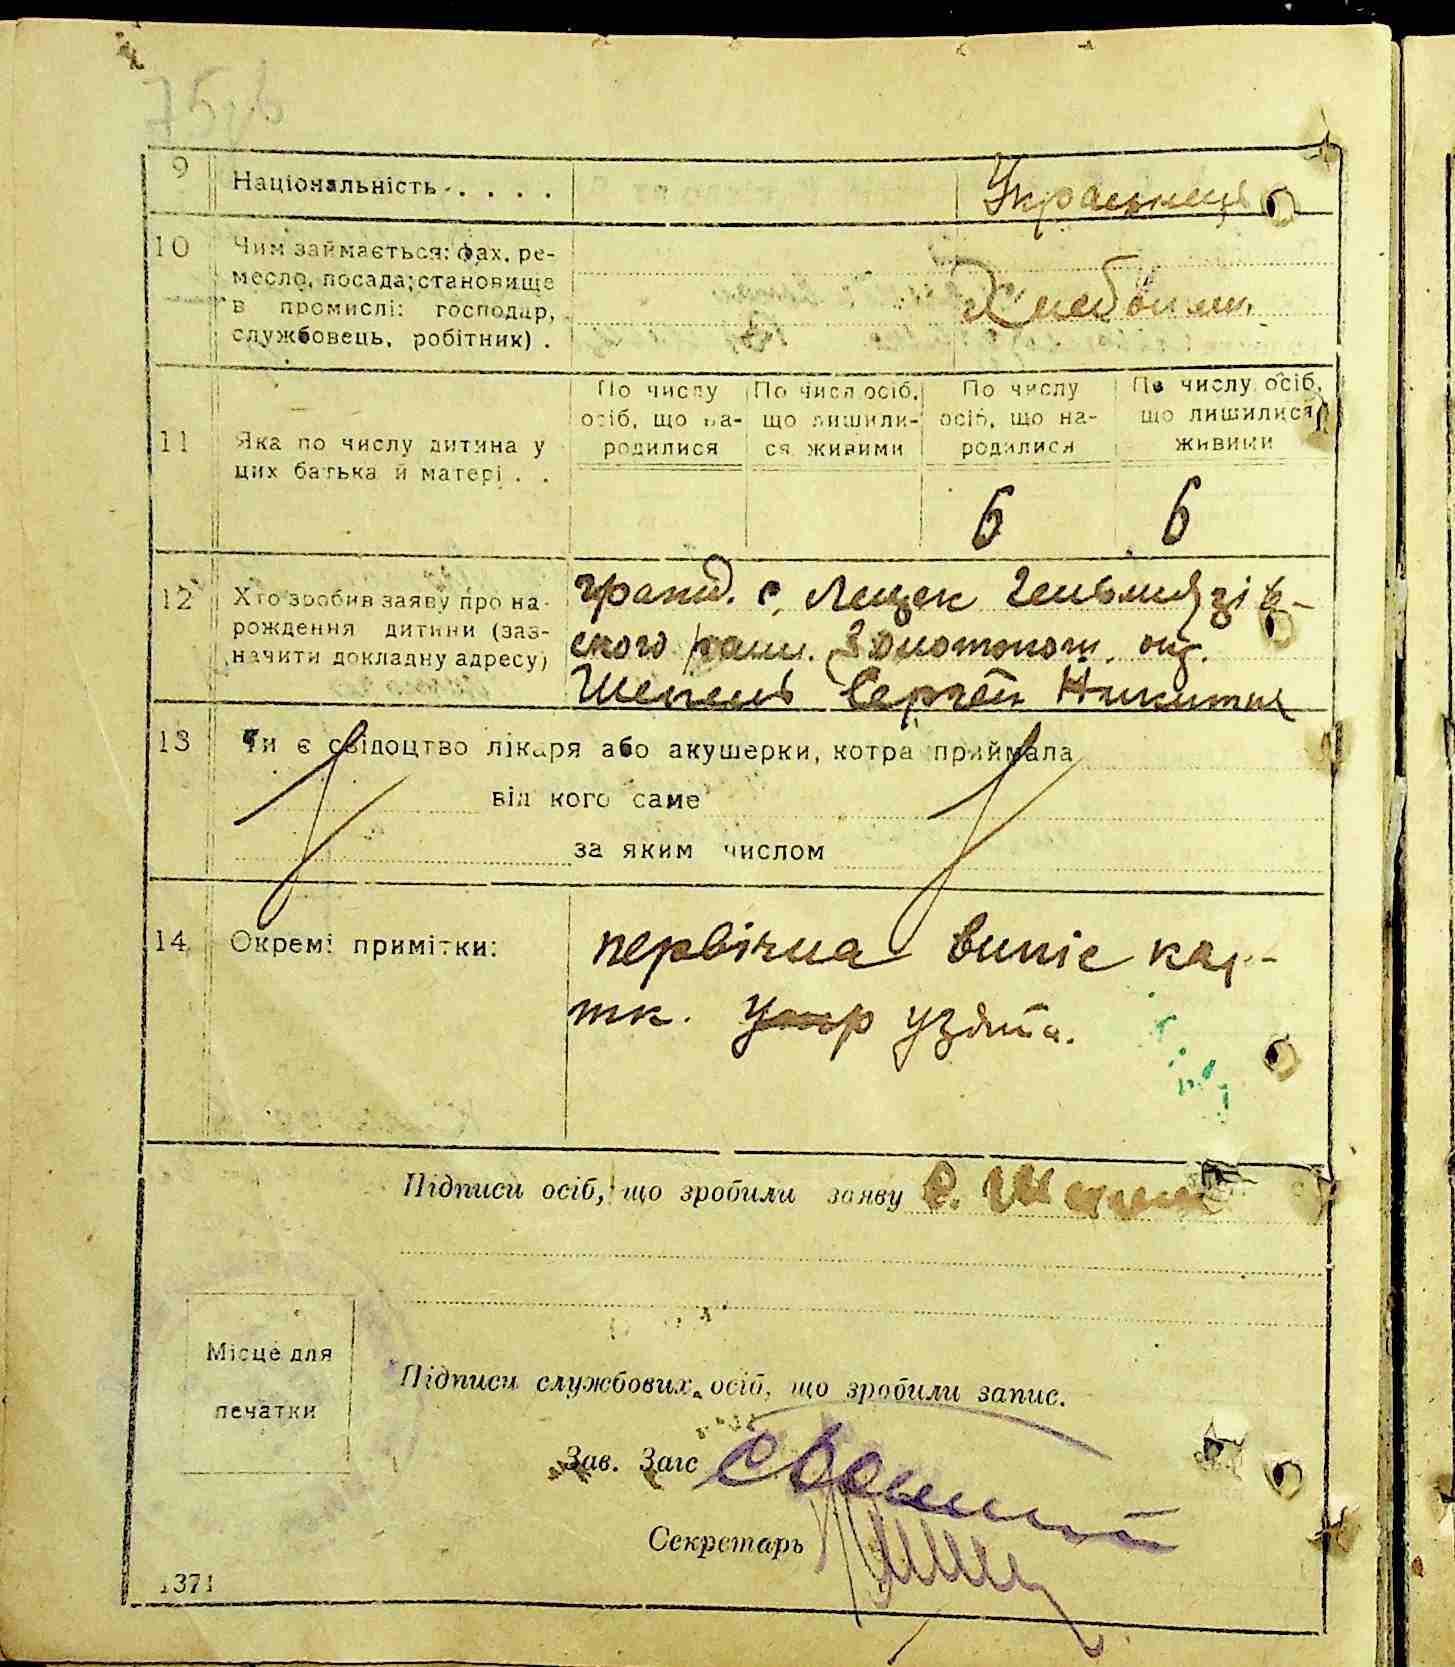 75зв
9 Національність . . . . Украинець
10 Чим займається: фах, ре-
месло, посада; становище
в промислі: господар,
службовець, робітник) .
Хлебопаш.
По числу осіб, що на-родилися По числ осіб, що лишили-ся живими По числу осіб, що на-родилися По числу осіб, що лишилися живими
11 Яка по числу дитина у
цих батька й матері . .
6 6
12 Хто зробив заяву про на-
рождення дитини (заз-
начити докладну адресу)
гражд. с. Лящек Гельмязів-
ского Золотонош. окр.
Шепель Сергей Никитич
13 Чи є свідоцтво лікаря або акушерки, котра приймала
від кого саме
за яким числом
14 Окремі примітки: первічна випіс кар-
тк. узята.
Підписи осіб, що зробили заяву С. Шепель
Місце для
печатки
Підписи службових осіб, що зробили запис.
Зав. Загс
Секретарь
1371